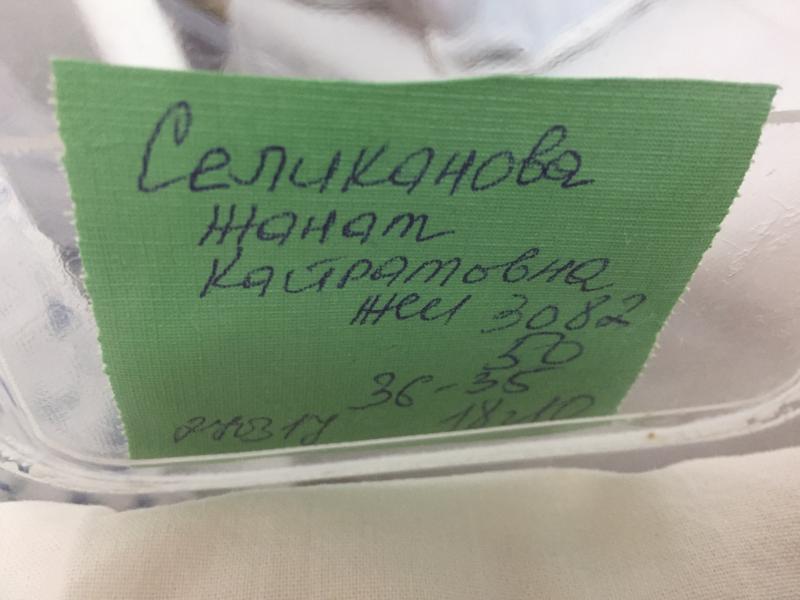 Селиканова
Жанат
Кайратовна
жен 3082
50
36-35
270317 18:10